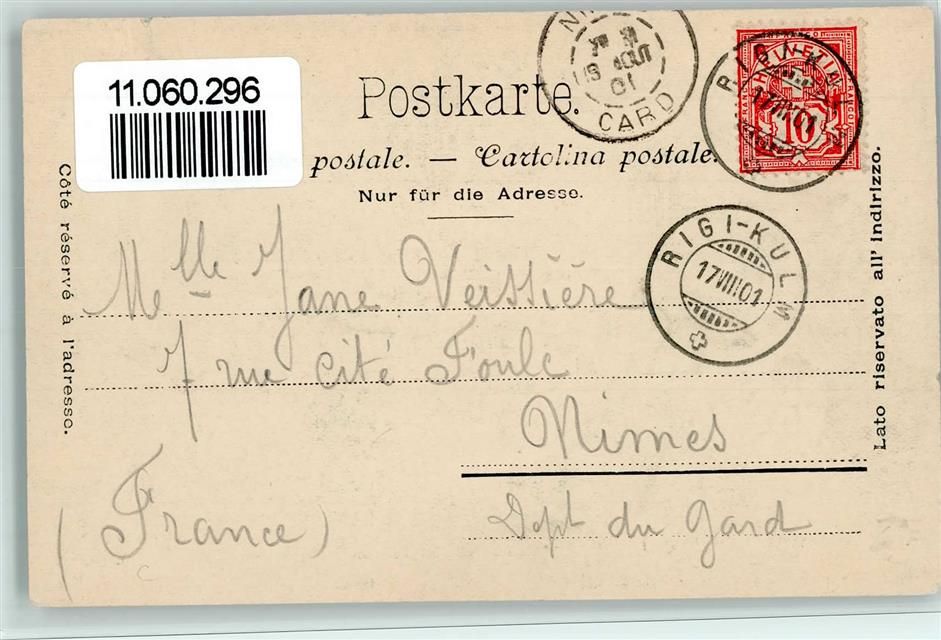 11.060.296
Postkarte.
postale. — Cartolina postale.
Nur für die Adresse.
Côté réservé à l'adresse.
Lato riservato all' indirizzo.
GARD
AOUT
01
RIGI-KULM
17VIII01
HELVETIA
10
RIGI-KULM
17VIII01
Melle Jane Veissière
7 rue Cité Foulc
Nimes
Dept du Gard
(France)